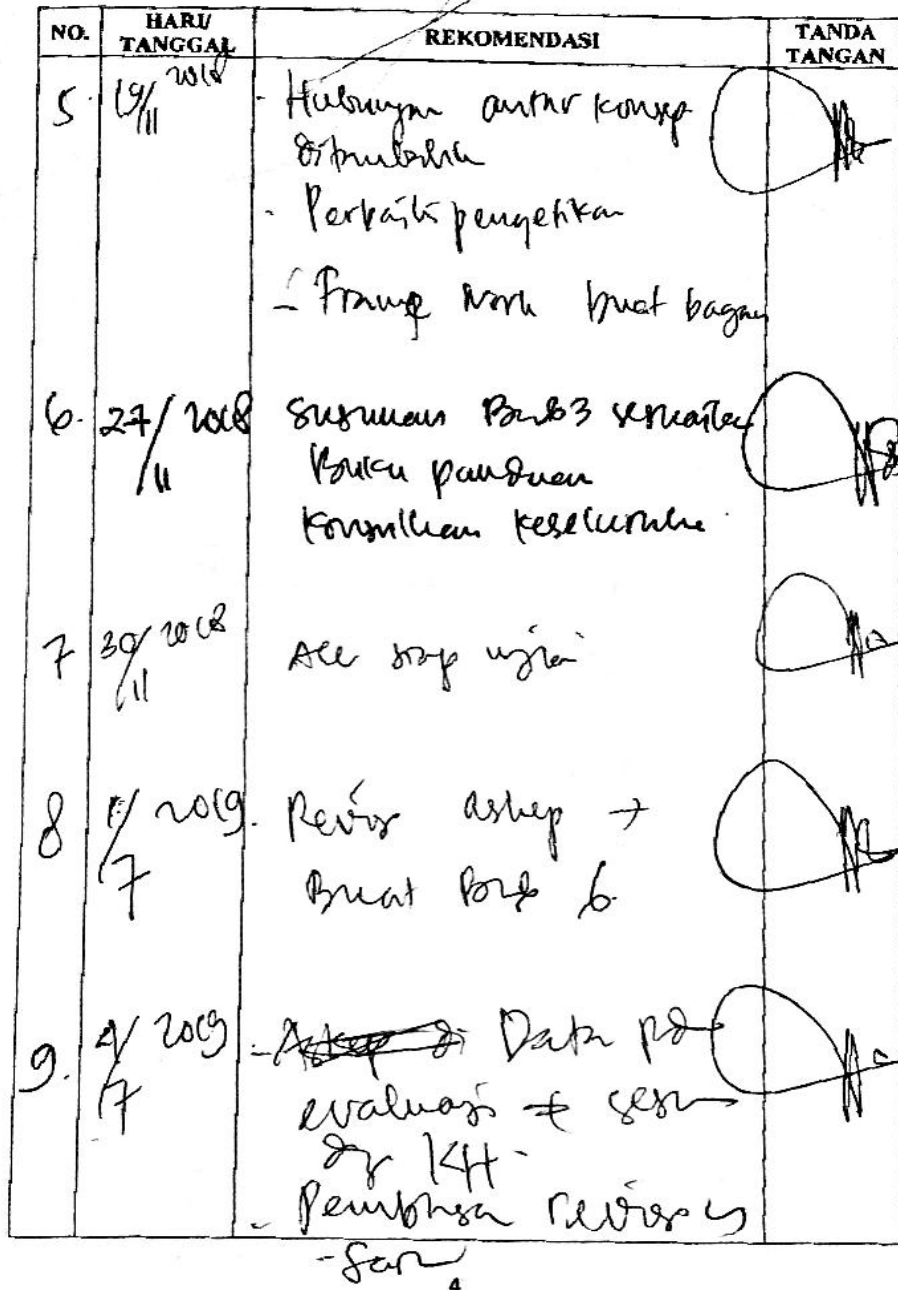 NO. HARI/ TANGGAL REKOMENDASI TANDA TANGAN
5. 19/11 2018 - Hubungan antar konsep
ditambahkan
- Perbaiki pengetikan
- Frame work buat bagan
6. 27/11 2018 Susunan Bab 3 sesuaikan
Buku panduan
Konsulkan keseluruhan
7 30/11 2018 Acc siap ujian
8 1/7 2019 - Revisi askep →
Buat Bab 6
9. 4/7 2019 - Data pd
evaluasi ≠ sesuai
dg KH -
- Pembahasan revisi
4